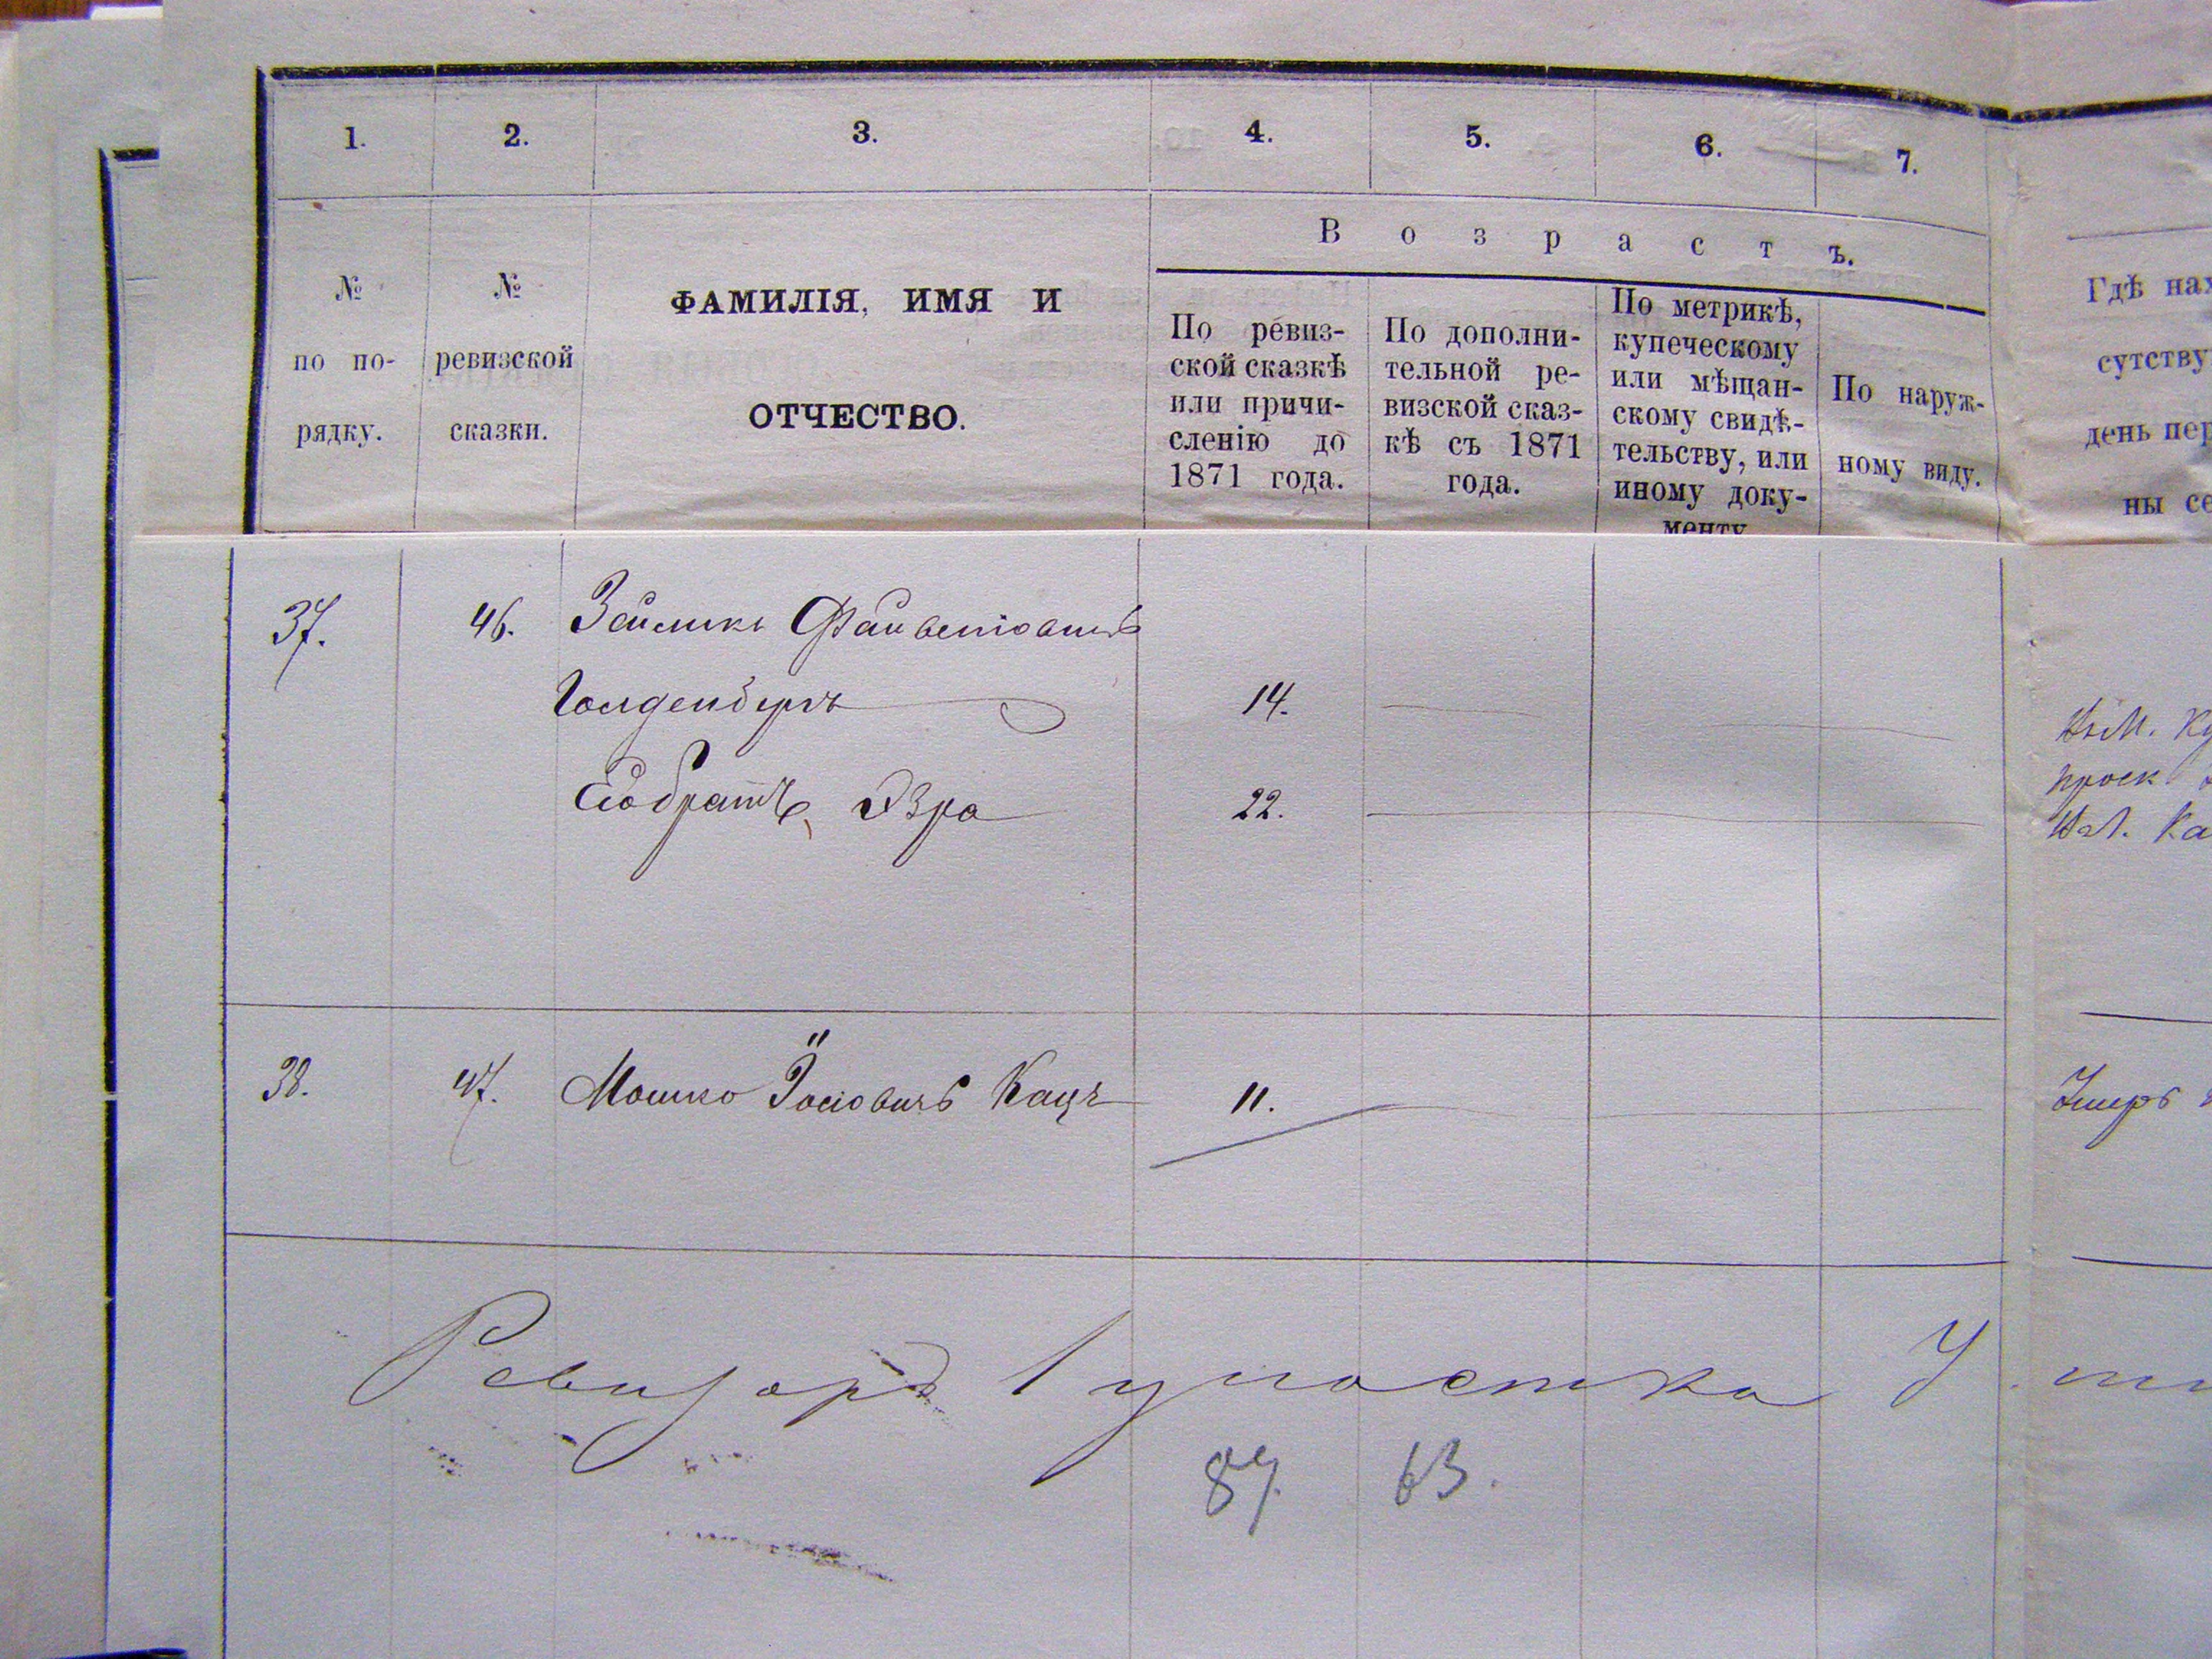 1. 2. 3. 4. 5. 6. 7.
Возрастъ.
№ по по-рядку.
№ ревизской сказки.
ФАМИЛІЯ, ИМЯ И
ОТЧЕСТВО.
По ревиз-
ской сказкѣ
или причи-
сленію до
1871 года.
По дополни-
тельной ре-
визской сказ-
кѣ съ 1871
года.
По метрикѣ,
купеческому
или мѣщан-
скому свидѣ-
тельству, или
иному доку-
менту
По наруж-
ному виду.
Гдѣ нах
сутству
день пер
ны се
37. 46. Зейликъ
Голденбергъ 14.
Его братъ, Эзра 22.
38. 47. Мошко Іосіовичъ Кацъ 11.
Умеръ
Ревизоръ 1 участка
87. 63.